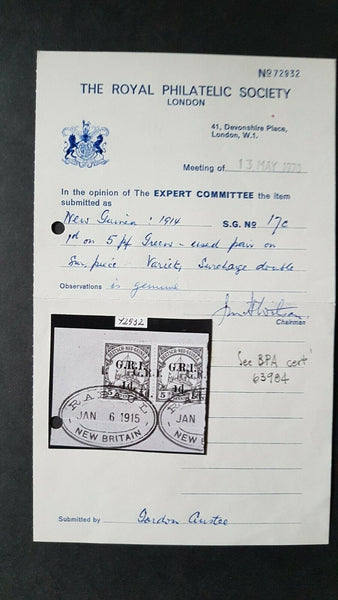 No 72932
THE ROYAL PHILATELIC SOCIETY
LONDON
41, Devonshire Place,
London, W.1.
Meeting of 13 MAY
In the opinion of The EXPERT COMMITTEE the item
submitted as
New Guinea: 1914 S.G. No 17c
1d on 5 pf Green - used pair on
piece Variety, Surcharge double
Observations is genuine
Chairman
72932
G.R.I. G.R.I.
1d. 1d.
5 5
RABAUL
JAN 6 1915 JAN
NEW BRITAIN NEW
See BPA cert
63984
Submitted by Gordon